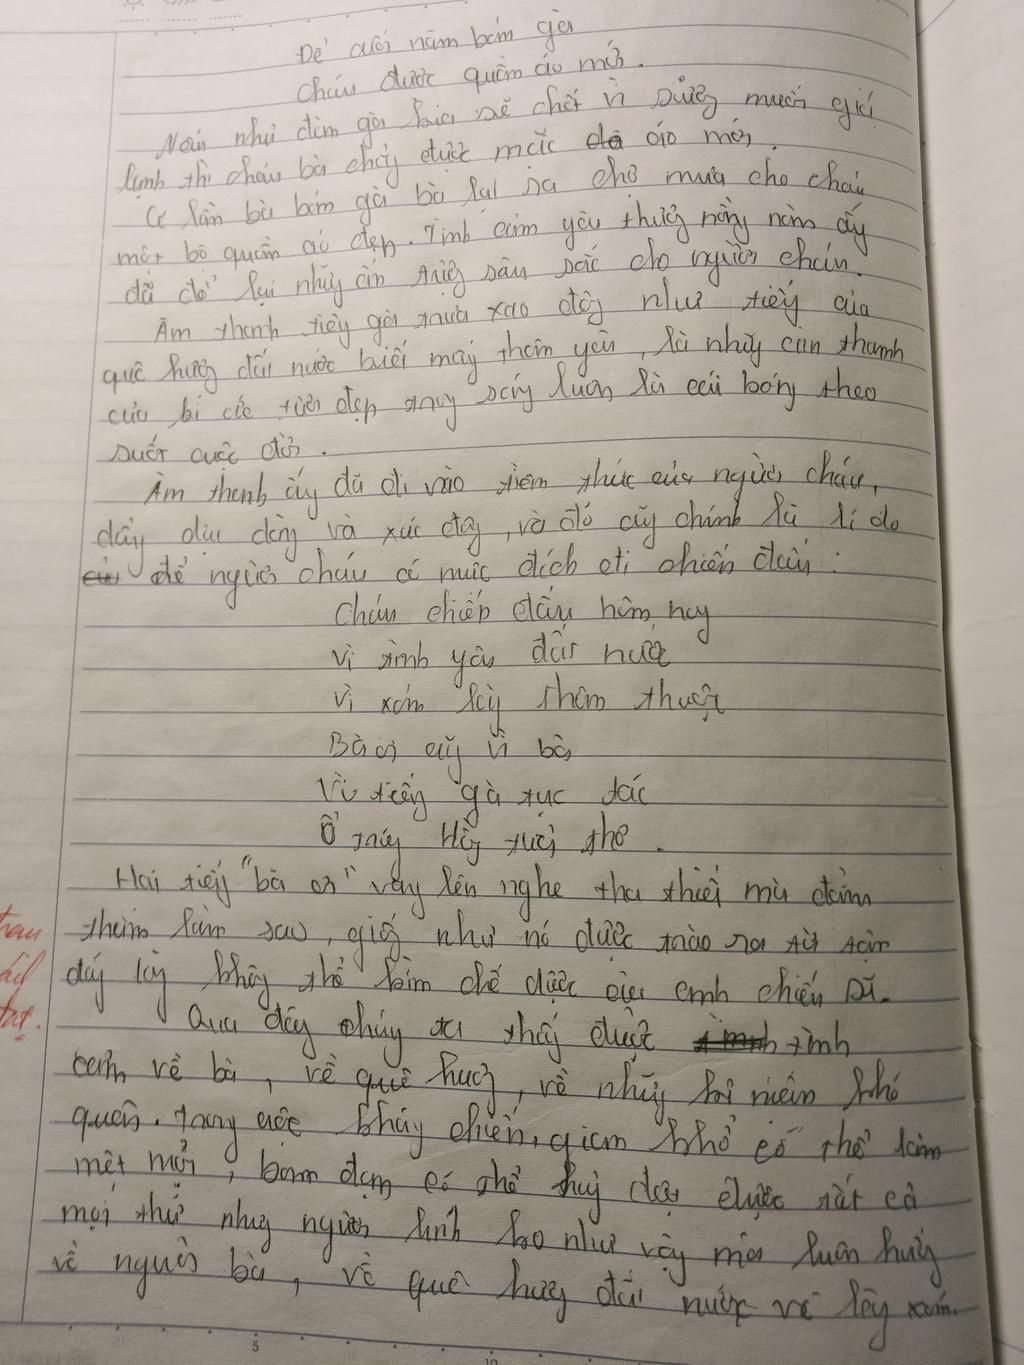 Để cuối năm bán gà
Cháu được quần áo mới.
Nếu như đàn gà kia sẽ chết vì sương muối giá
lạnh thì cháu bà chẳng được mặc áo mới.
Cứ lần bà bán gà bà lại ra chợ mua cho cháu
một bộ quần áo đẹp. Tình cảm yêu thương nồng nàn ấy
đã để lại những ấn tượng sâu sắc cho người cháu.
Âm thanh tiếng gà trưa xao động như tiếng của
quê hương đất nước biết mấy thân yêu, là những âm thanh
của tươi đẹp trong sáng luôn là cái bóng theo
suốt cuộc đời.
Âm thanh ấy đã đi vào tiềm thức của người cháu,
đầy dịu dàng và xúc động, và đó cũng chính là lí do
để người cháu có mục đích đi chiến đấu:
Cháu chiến đấu hôm nay
Vì tình yêu đất nước
Vì xóm làng thân thuộc
Bà ơi cũng vì bà
Vì tiếng gà cục tác
Ổ trứng hồng tuổi thơ.
Hai tiếng "bà ơi" vang lên nghe tha thiết mà đằm
thắm làm sao, giống như nó được trào ra từ tận
đáy lòng không thể kìm chế được của anh chiến sĩ.
Qua đây chúng ta thấy được tình
cảm về bà, về quê hương, về những kỉ niệm khó
quên. Trong cuộc kháng chiến, gian khổ có thể làm
mệt mỏi, bom đạn có thể huỷ được tất cả
mọi thứ nhưng người lính như vậy mãi luôn hướng
về người bà, về quê hương đất nước về làng xóm.